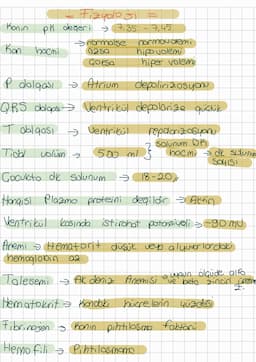 = Fizyoloji =
Kanın pH değeri → 7.35 - 7.45
Kan hacmi → normalse normovolemi
azsa hipovolemi
çoksa hipervolemi
P dalgası → Atrium depolarizasyonu
QRS dalgası → Ventrikül depolarize
T dalgası → Ventrikül repolarizasyonu
Tidal volüm → 500 ml } Solunum DK hacmi → dk solunum sayısı
Çocukta dk solunum → 18-20
Hangisi Plazma proteini değildir → Aktin
Ventrikül kasında istirahat potansiyeli → -90 mV
Anemi → Hematokrit düşük veya alyuvarlardaki
hemoglobin az
Talesemi → Akdeniz Anemisi ve beta zinciri
Hematokrit → Kandaki hücrelerin yüzdesi
Fibrinojen → Kanın pıhtılaşma faktörü
Hemofili → Pıhtılaşmama